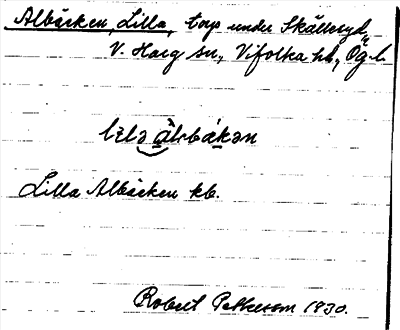 Albäcken, Lilla, torp under Skälleryd,
V. Harg sn., Vifolka hd, Ög. l.
lìlə àlrbàkən
Lilla Albäcken kb.
Robert Pettersson 1930.